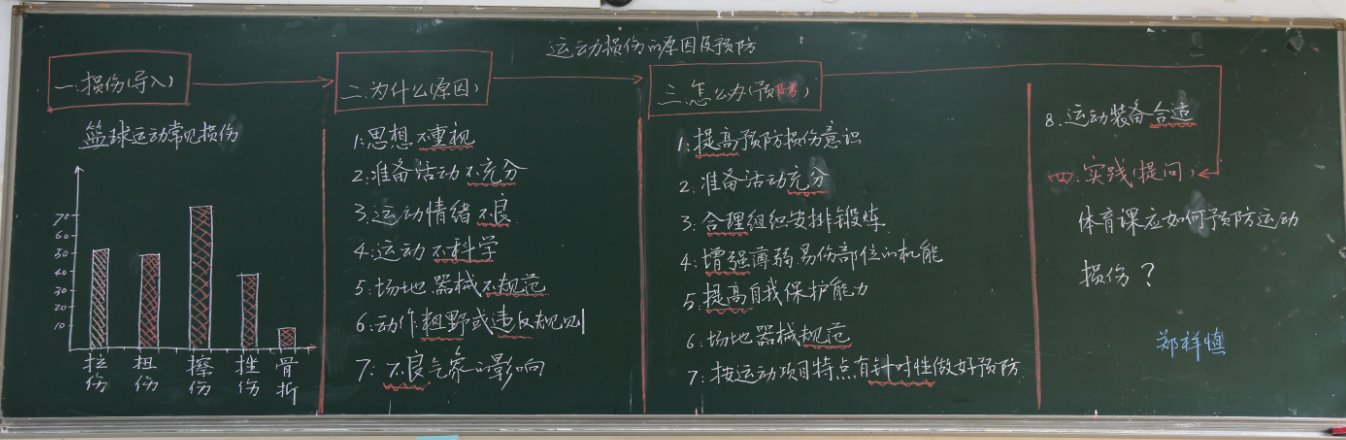 运动损伤的原因及预防
一.损伤(导入)
篮球运动常见损伤
70
60
50
40
30
20
10
拉伤 扭伤 擦伤 挫伤 骨折
二.为什么(原因)
1.思想不重视
2.准备活动不充分
3.运动情绪不良
4.运动不科学
5.场地器械不规范
6.动作粗野或违反规则
7.不良气象的影响
三.怎么办(预防)
1.提高预防损伤意识
2.准备活动充分
3.合理组织安排锻炼
4.增强薄弱.易伤部位的机能
5.提高自我保护能力
6.场地器械规范
7.按运动项目特点有针对性做好预防
8.运动装备合适
四.实践(提问)
体育课应如何预防运动
损伤？
郑祥慎